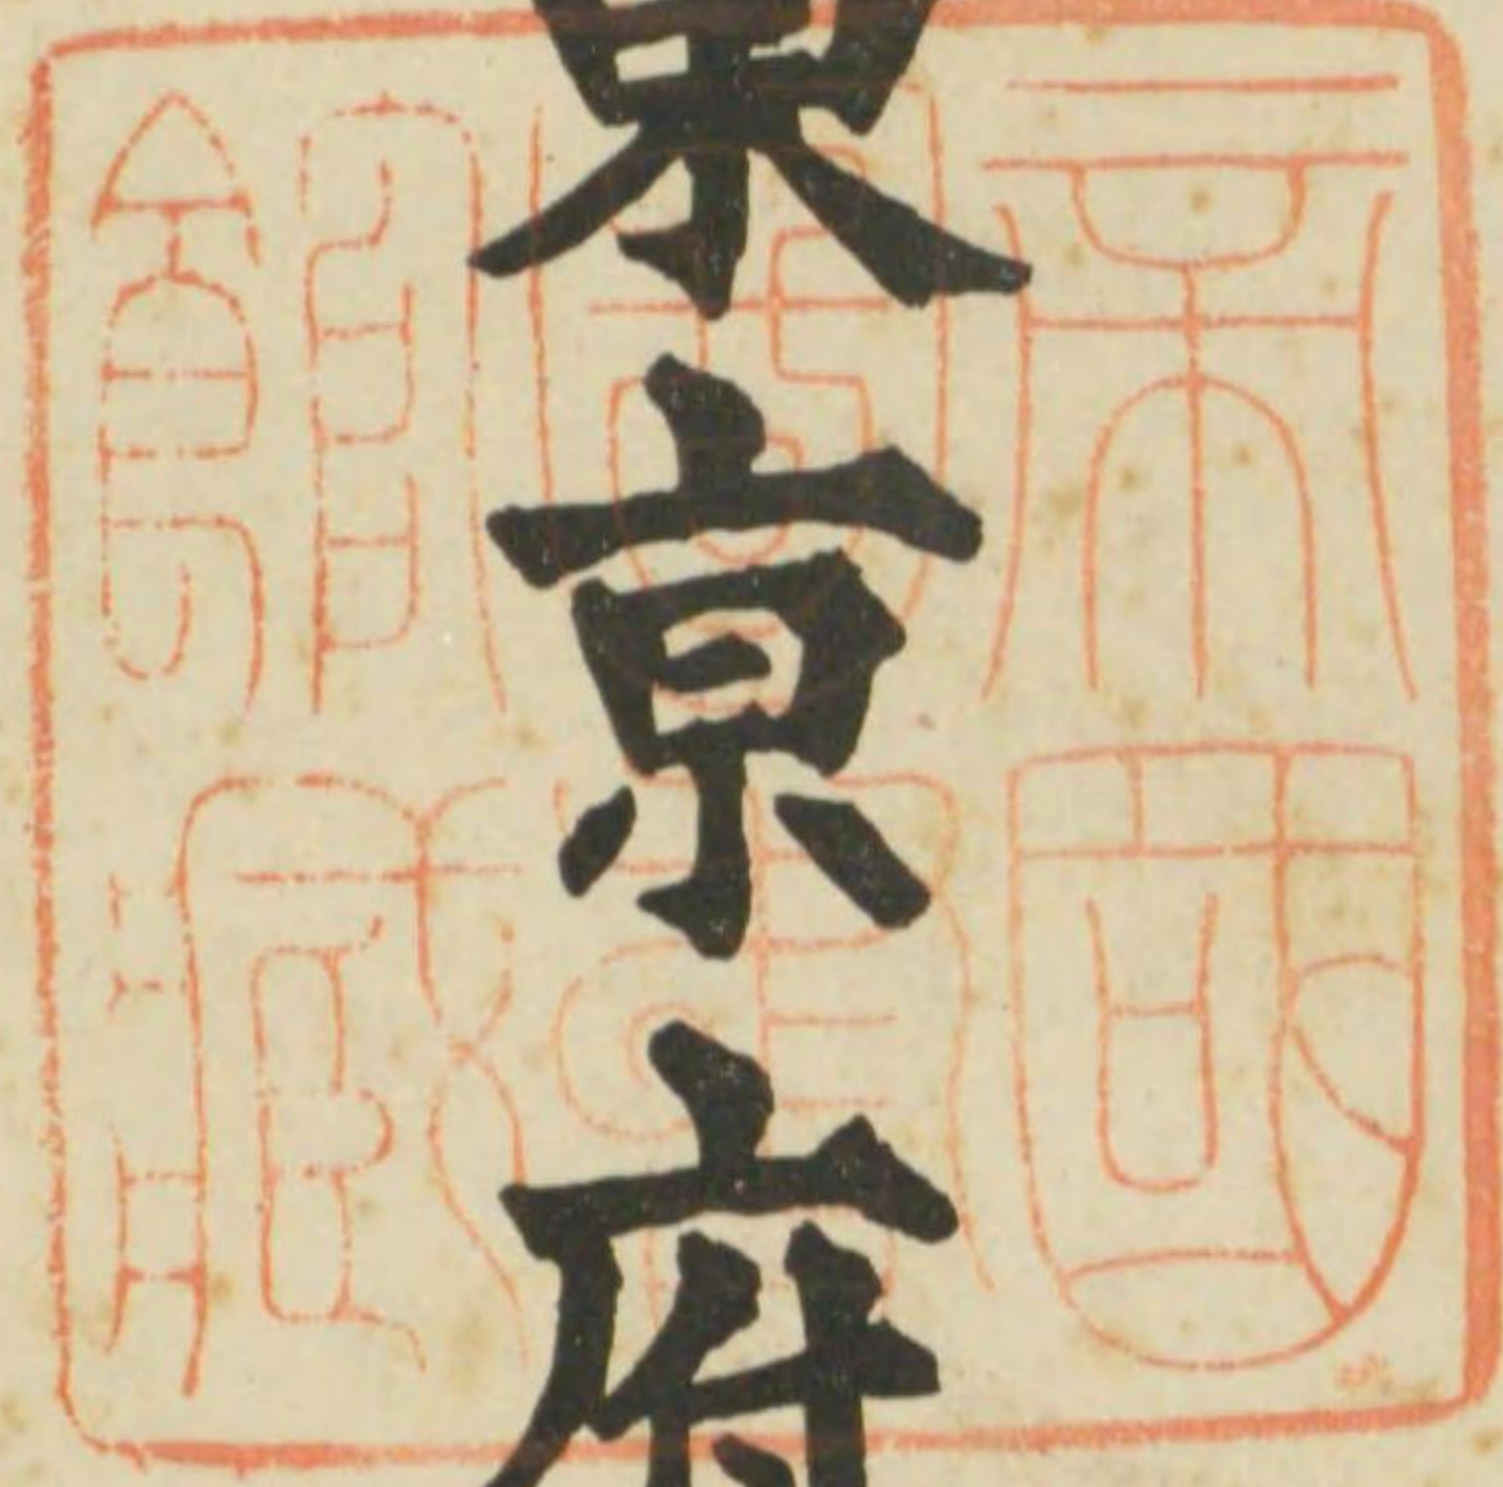 東京府
帝國
圖書
館藏